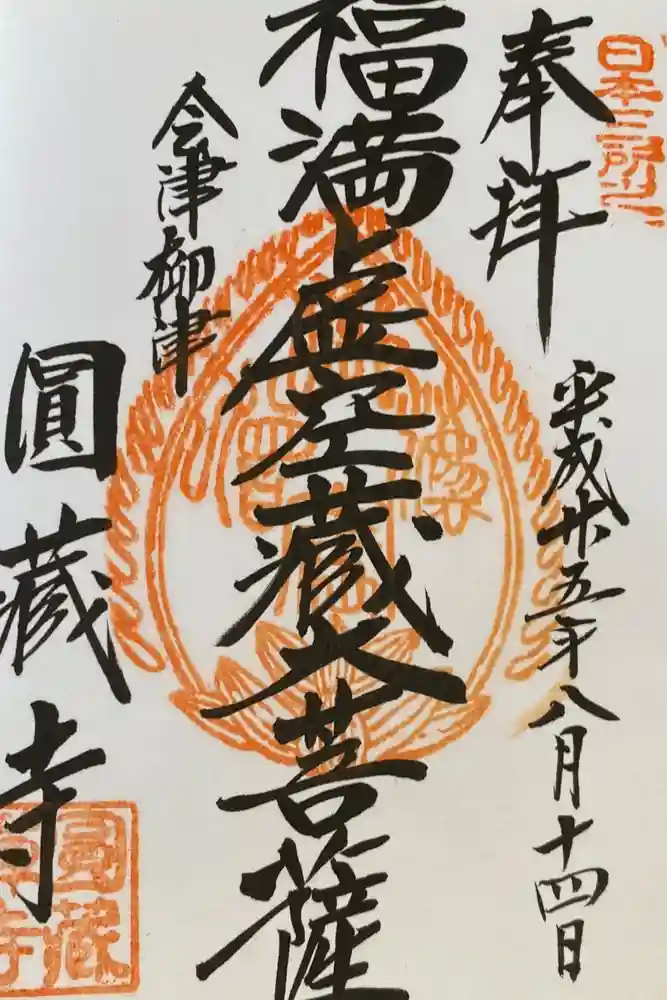 日本三所之一
奉拝
平成廿五年八月十四日
福満虚空蔵大菩薩
会津柳津
圓蔵寺
圓蔵
寺